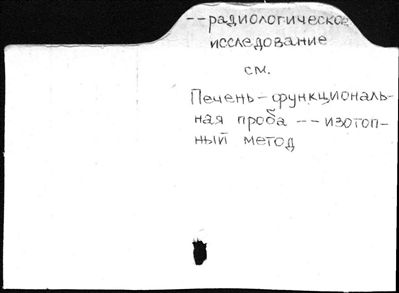 --радиологическое
исследование
см.
Печень-функциональ-
ная проба -- изотоп-
ный метод